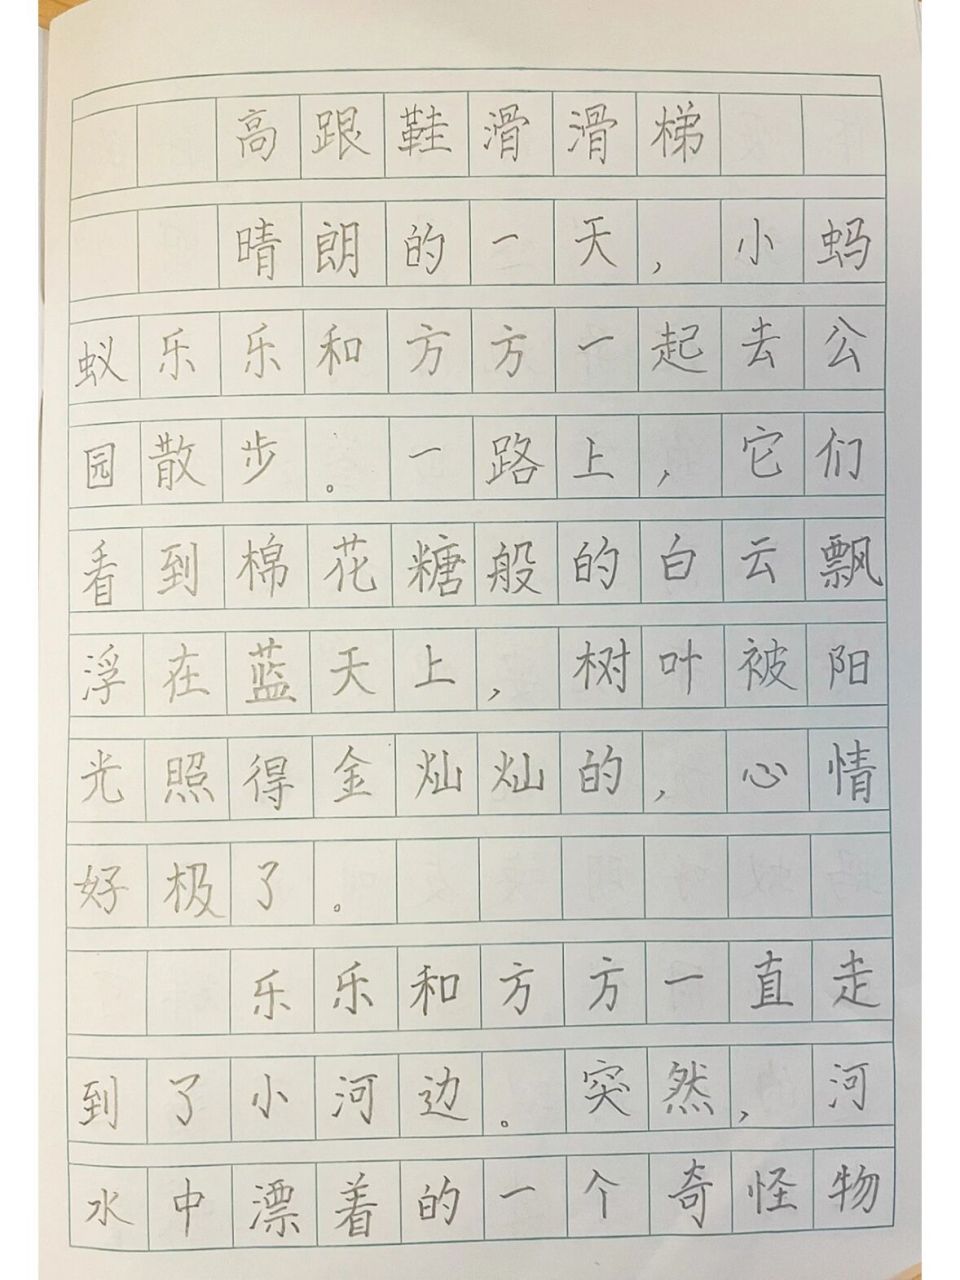 高跟鞋滑滑梯
晴朗的一天，小蚂
蚁乐乐和方方一起去公
园散步。一路上，它们
看到棉花糖般的白云飘
浮在蓝天上，树叶被阳
光照得金灿灿的，心情
好极了。
乐乐和方方一直走
到了小河边。突然，河
水中漂着的一个奇怪物